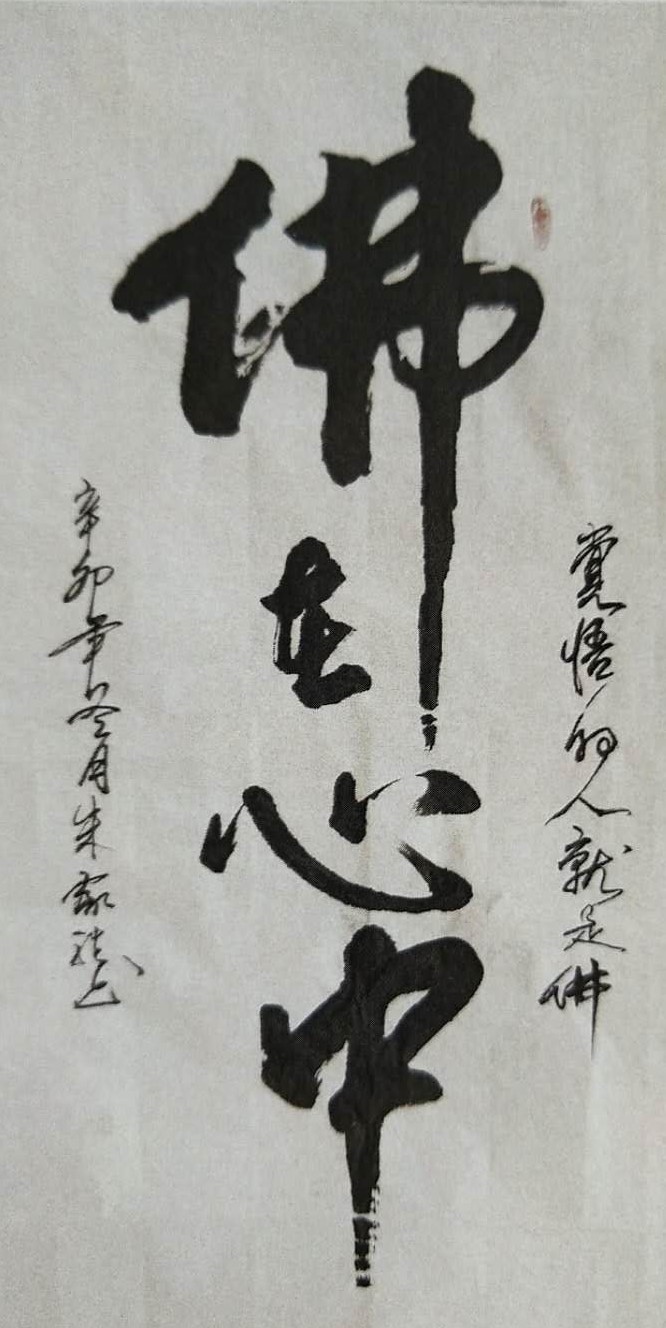 觉悟的人就是佛
佛在心中
辛卯年冬月朱家